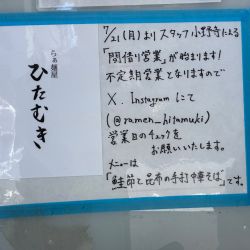 らぁ麺屋
ひたむき
7/21(月)よりスタッフ小野寺による
「間借り営業」が始まります!
不定期営業となりますので
X. Instagramにて
(@ramen_hitamuki)
営業日のチェックを
お願いいたします。
メニューは
「鮭節と昆布の手打中華そば」です。